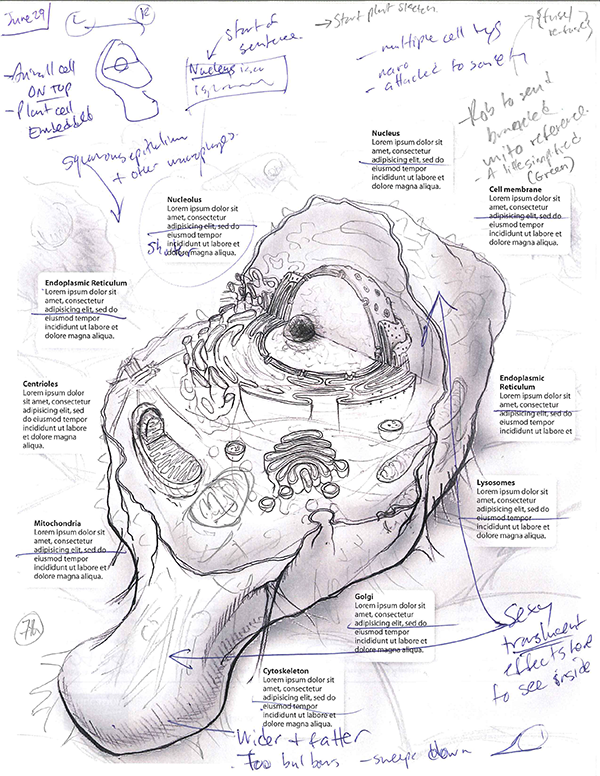 June 29
start of
sentence.
→ Start plant sketch
Nucleus
- multiple cell
- attached to
- Animal cell
ON TOP
- Plant cell
Embedded
squamous epithelium
+ other
- Rob to send
mito reference.
- A little simplified
(Green)
Nucleus
Lorem ipsum dolor sit
amet, consectetur
adipisicing elit, sed do
eiusmod tempor
incididunt ut labore
et dolore magna aliqua.
Cell membrane
Lorem ipsum dolor sit
amet, consectetur
adipisicing elit, sed do
eiusmod tempor
incididunt ut labore et
dolore magna aliqua.
Nucleolus
Lorem ipsum dolor sit
amet, consectetur
adipisicing elit, sed do
eiusmod tempor
incididunt ut labore et
dolore magna aliqua.
Endoplasmic Reticulum
Lorem ipsum dolor sit
amet, consectetur
adipisicing elit, sed do
eiusmod tempor
incididunt ut labore et
dolore magna aliqua.
Centrioles
Lorem ipsum dolor sit
amet, consectetur
adipisicing elit, sed do
eiusmod tempor
incididunt ut labore
et dolore magna
aliqua.
Endoplasmic
Reticulum
Lorem ipsum dolor sit
amet, consectetur
adipisicing elit, sed do
eiusmod tempor
incididunt ut labore et
Lysosomes
Lorem ipsum dolor sit
amet, consectetur
adipisicing elit, sed do
eiusmod tempor
incididunt ut labore et
dolore magna aliqua.
Mitochondria
Lorem ipsum dolor sit
amet, consectetur
adipisicing elit, sed do
eiusmod tempor
incididunt ut labore et
dolore magna aliqua.
Golgi
Lorem ipsum dolor sit
amet, consectetur
adipisicing elit, sed do
eiusmod tempor
incididunt ut labore et
dolore magna aliqua.
Sexy
translucent
effects here
to see inside
Cytoskeleton
Lorem ipsum dolor sit
amet, consectetur
adipisicing elit, sed do
eiusmod tempor
incididunt ut labore et
dolore magna aliqua.
- Wider + fatter
- Too bulbous - sweep down